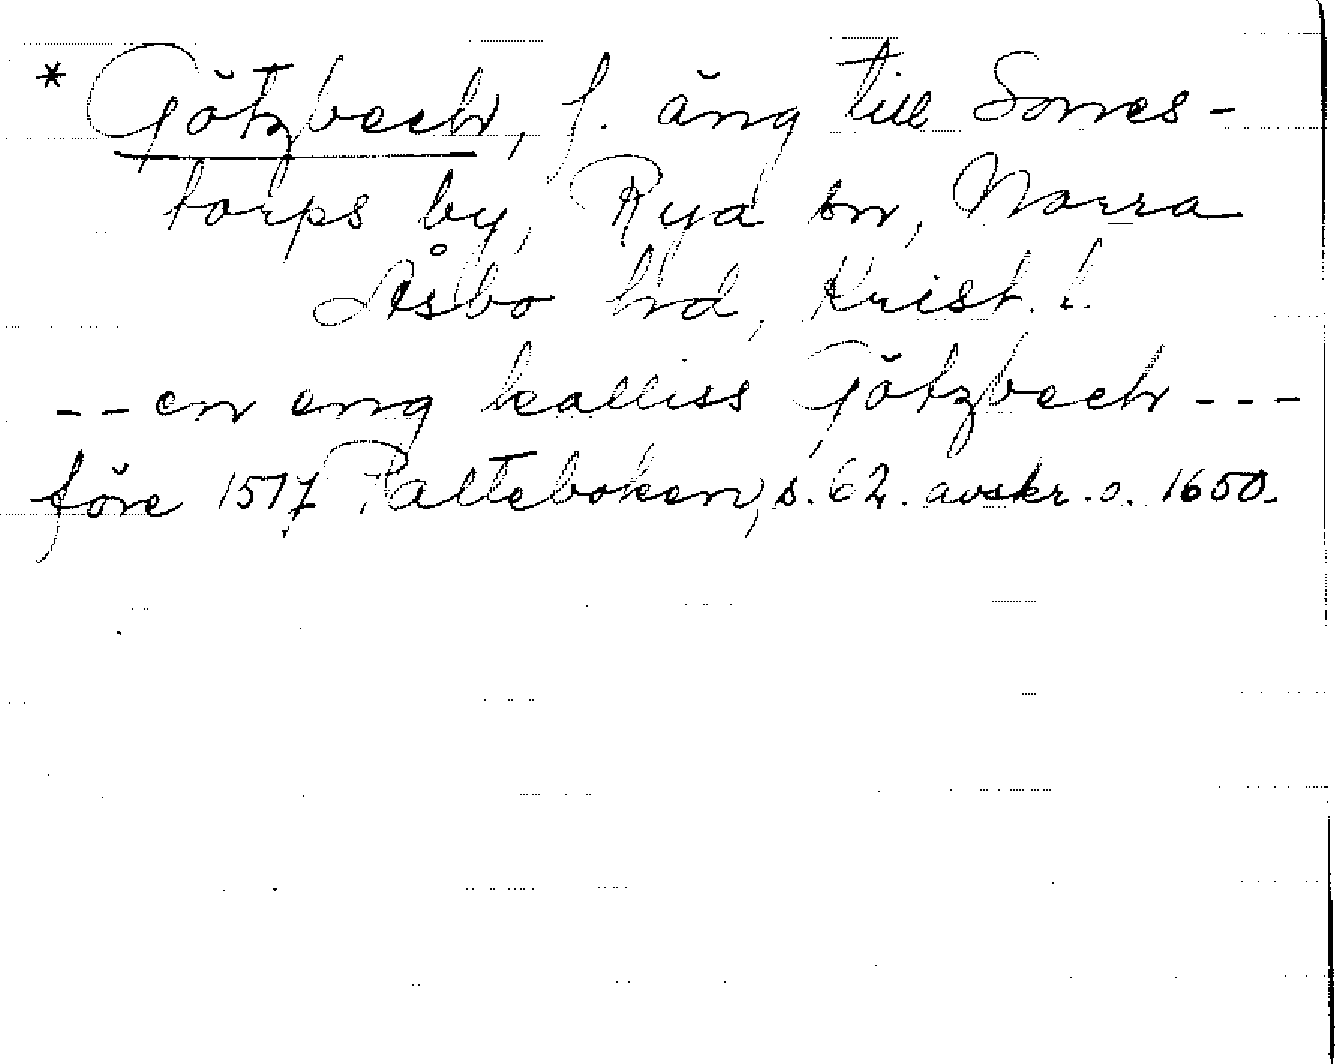 * Götzbech, f. äng till Sones-
torps by, Rya sn, Norra
Åsbo hd, Krist. l.
-- en eng kalliss Götzbech ---
före 1517 Palteboken, s. 62. avskr. o. 1650.